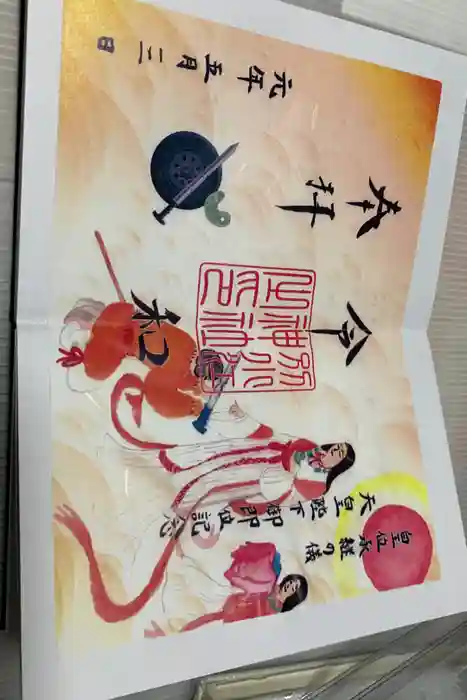 奉拝
令和
元年五月三日
皇位承継の儀
天皇陛下御即位記念
別小江
神社
之印